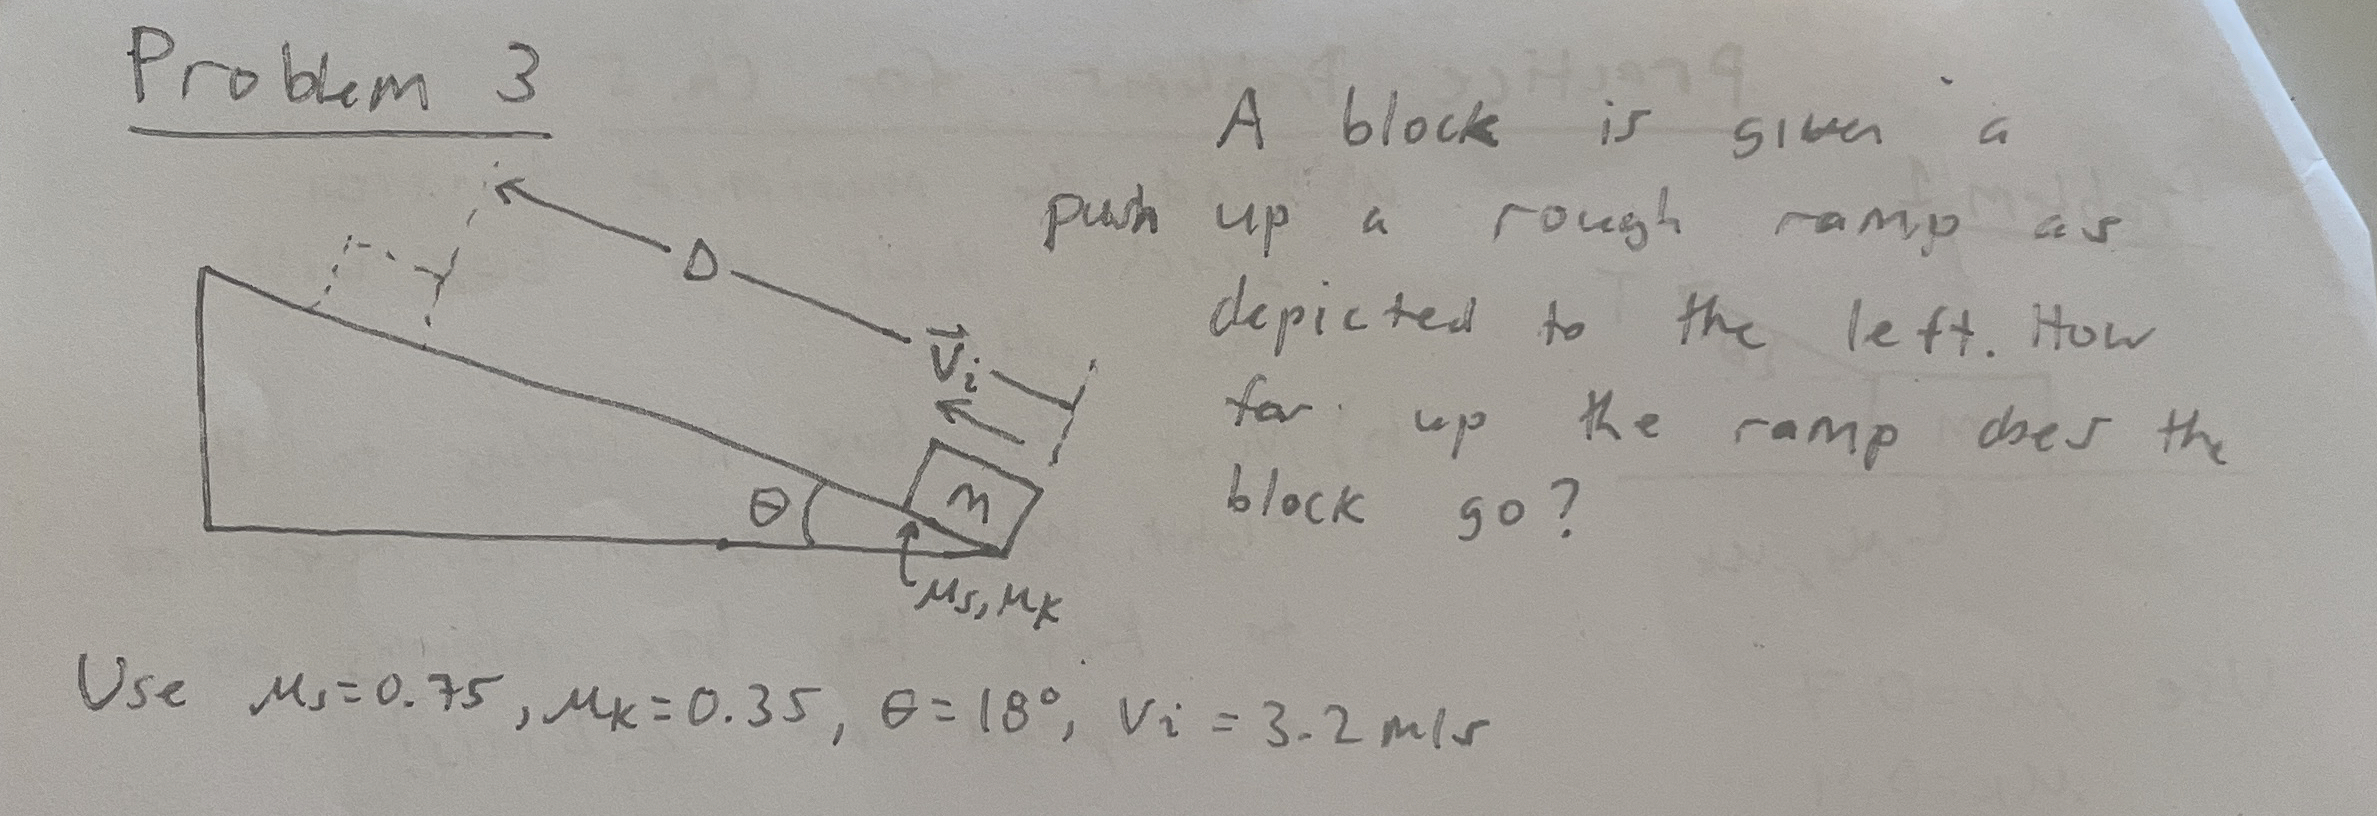 Problem 3
A block is given a
push up a rough ramp as
depicted to the left. How
far up the ramp does the
block go?
D
v⃗i
θ
m
μs, μk
Use μs=0.75, μk=0.35, θ=18°, vi = 3.2 m/s